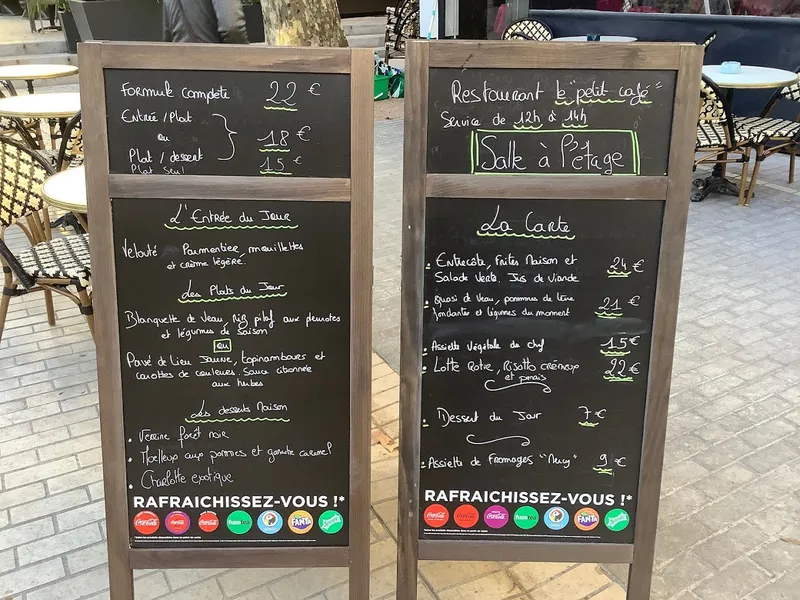 Formule complète 22 €
Entrée / Plat
ou
18 €
Plat / dessert
Plat seul 15 €
L'Entrée du Jour
Velouté Parmentier, mouillettes
et crème légère.
Les Plats du Jour
Blanquette de Veau, Riz pilaf aux
et légumes de saison
ou
Pavé de Lieu Jaune, topinambours et
carottes de couleurs. Sauce
aux herbes
Les desserts Maison
• Verrine forêt noir
• Moelleux aux pommes et caramel
• Charlotte exotique
RAFRAICHISSEZ-VOUS !*
Coca-Cola
Coca-Cola
Coca-Cola
fuzetea
FANTA
Restaurant le "petit café"
Service de 12h à 14h
Salle à l'étage
La Carte
• Entrecôte, frites Maison et
Salade Verte. Jus de Viande 24 €
• Quasi de Veau, pommes de terre
fondantes et légumes du moment 21 €
• Assiette Végétale du chef 15 €
• Lotte Rotie, Risotto crémeux
et panais 22 €
• Dessert du Jour 7 €
• Assiette de Fromages "Mery" 9 €
RAFRAICHISSEZ-VOUS !*
Coca-Cola
fuzetea
FANTA